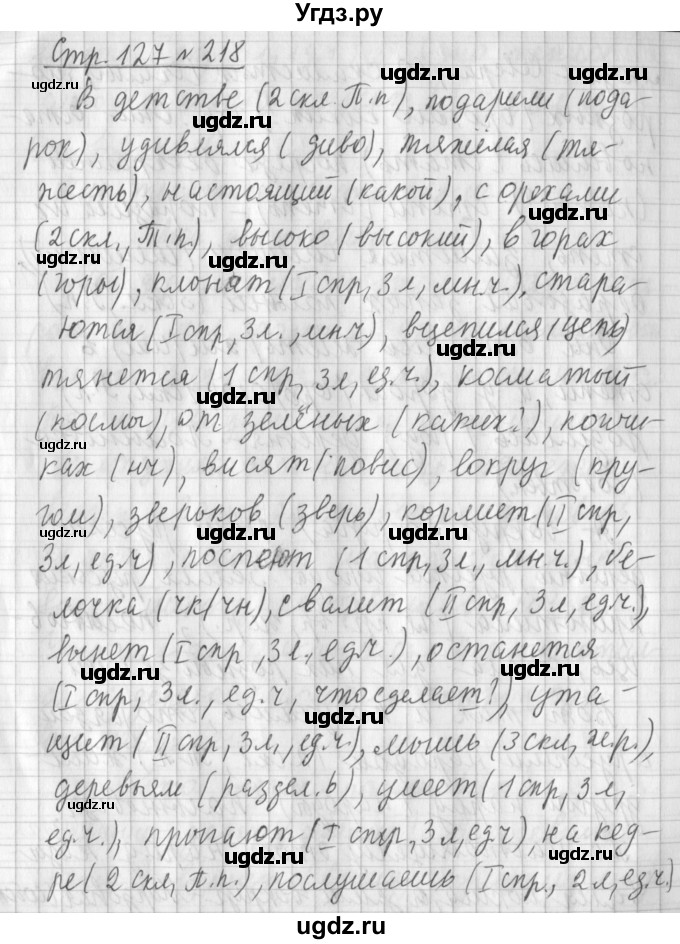 Угдз.ру
Стр. 127 № 218
В детстве (2 скл. П.п), подарили (пода-
рок), удивлялся (диво), тяжёлая (тя-
жесть), настоящий (какой), с орехами
(2 скл., Т.п.), высоко (высокий), в горах
(горы), клонят (I спр, 3 л, мн.ч.), стара-
ются (I спр, 3 л., мн.ч.), вцепился (цепь)
тянется (1 спр, 3 л, ед.ч.), косматый
(космы), от зелёных (каких?), кончи-
ках (нч), висят (повис), вокруг (кру-
гом), зверьков (зверь), кормит (II спр,
3 л, ед.ч), поспеют (1 спр, 3 л., мн.ч.), бе-
лочка (чк/чн), свалит (II спр, 3 л, ед.ч.),
вынет (I спр, 3 л., ед.ч.), останется
(I спр, 3 л., ед.ч, что сделает?), ута-
щит (II спр, 3 л, ед.ч.), мышь (3 скл, ж.р.),
деревьям (раздел. ь), умеет (1 спр, 3 л,
ед.ч.), пропают (I спр, 3 л, ед.ч), на кед-
ре (2 скл, П.п.), послушаешь (I спр., 2 л, ед.ч.)
ugdz.ru